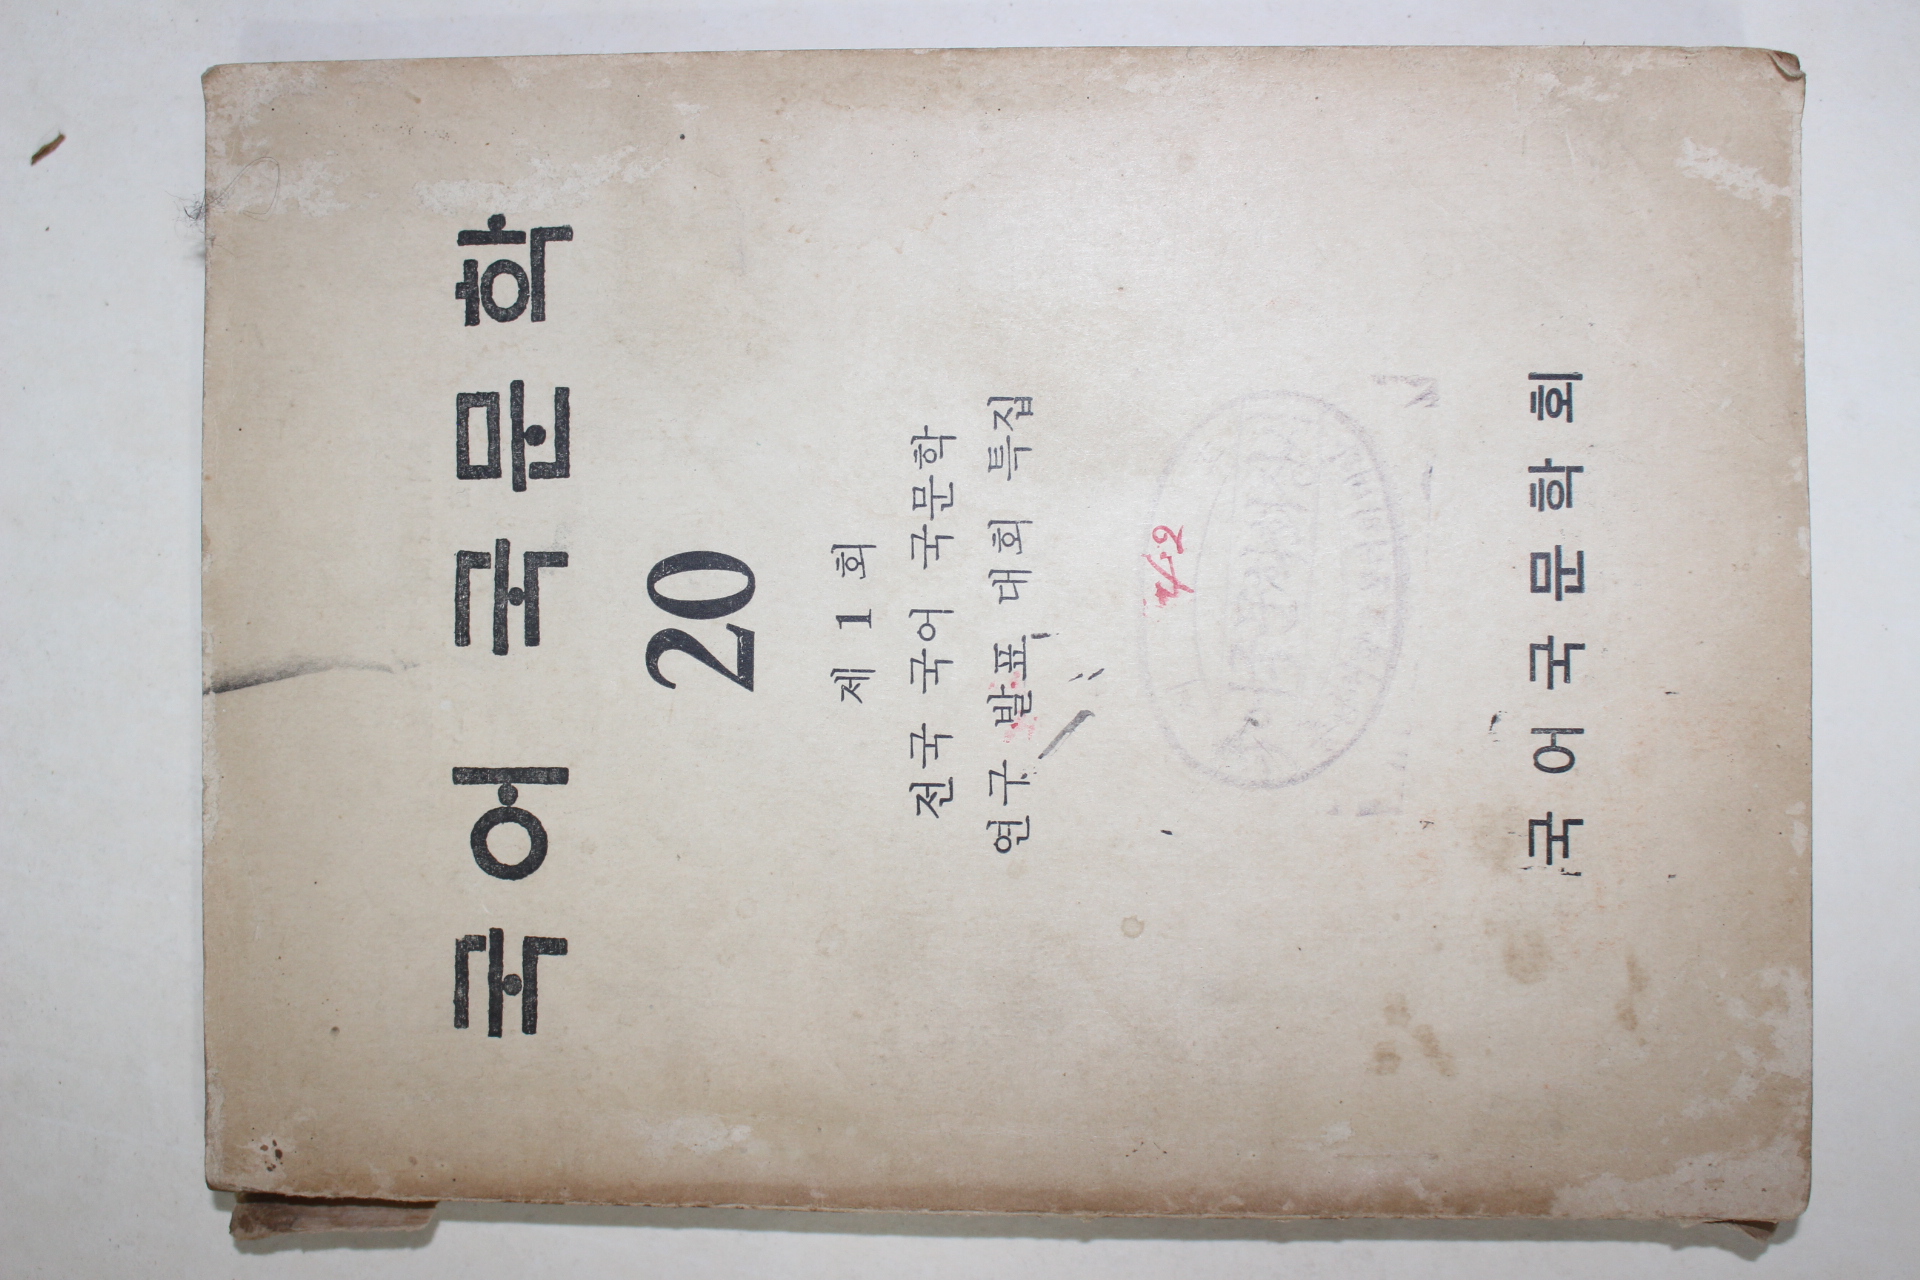 국어국문학
20
제 1 회
전국 국어 국문학
연구 발표 대회 특집
국어국문학회